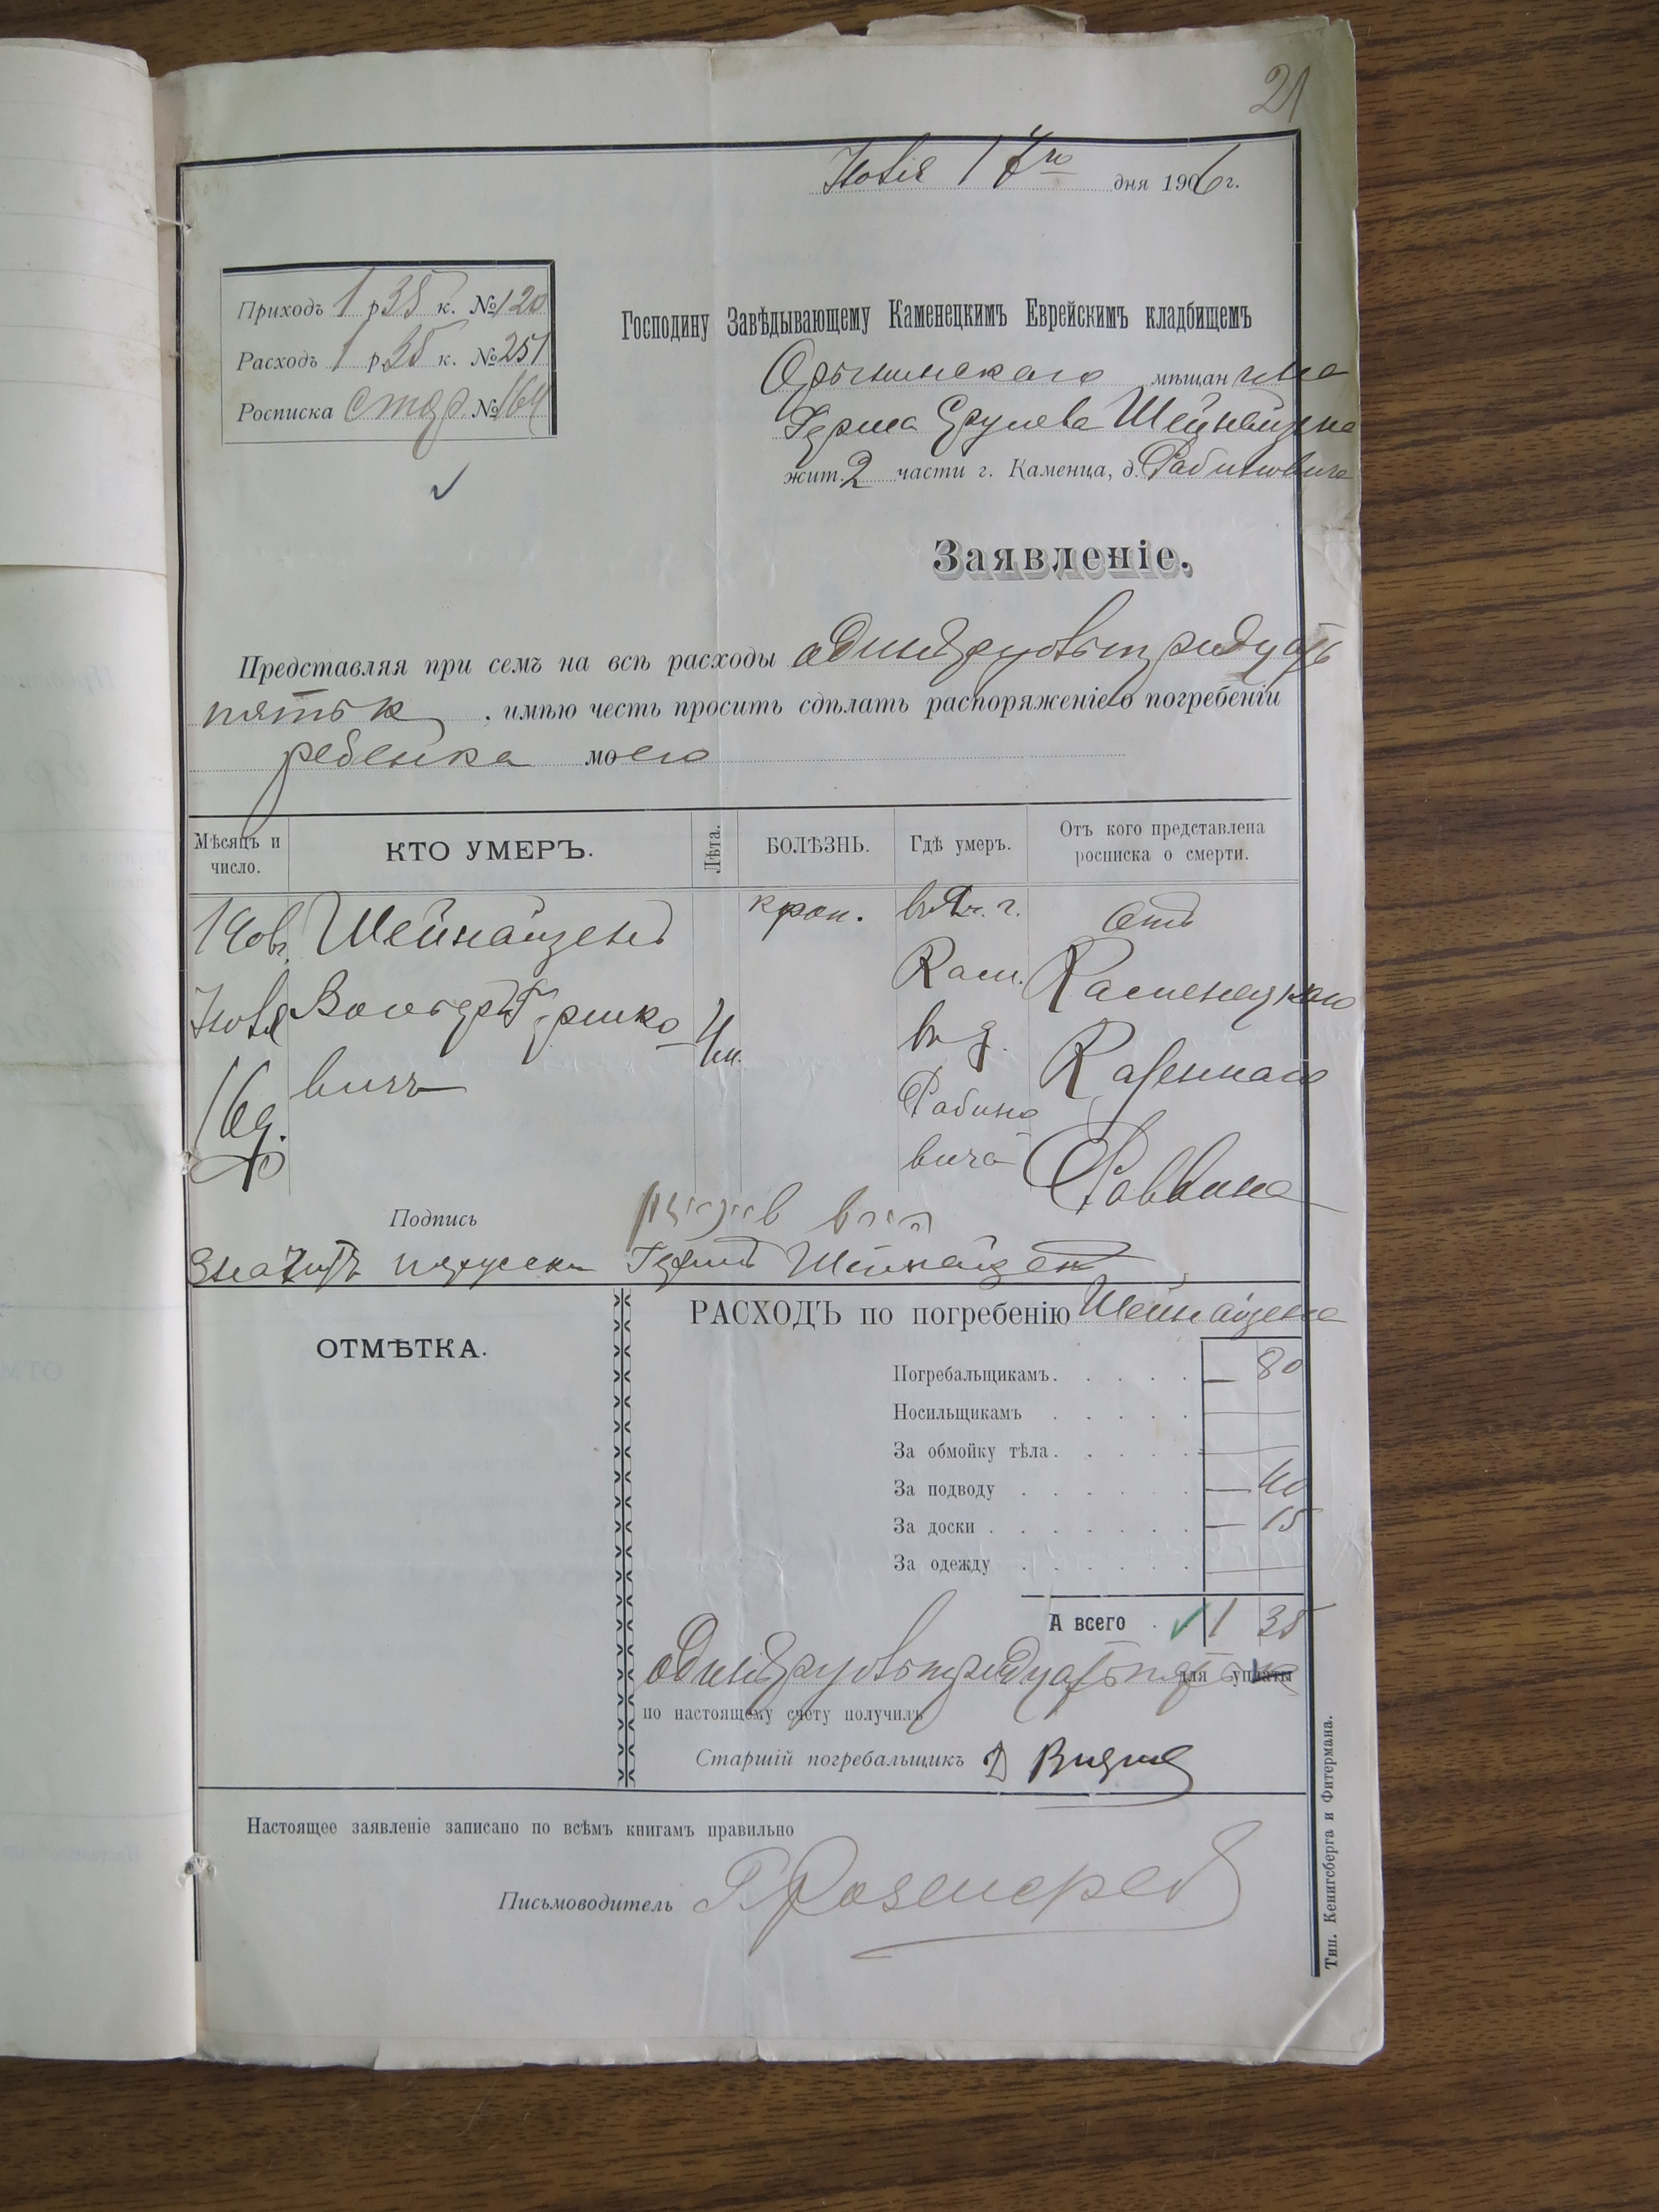 21
дня 1906 г.
Приходъ 1 р 35 к. № 120
Расходъ 1 р 35 к. № 251
Росписка № 164
Господину Завѣдывающему Каменецкимъ Еврейскимъ кладбищемъ
Орынинскаго мѣщанина
Герша Срулева Шейнайзена
жит. 2 части г. Каменца, д. Рабиновича
Заявленіе.
Представляя при семъ на всѣ расходы одинъ рубль тридцать
пять к , имѣю честь просить сдѣлать распоряженіе о погребеніи
ребенка моего
Мѣсяцъ и число. КТО УМЕРЪ. Лѣта. БОЛѢЗНЬ. Гдѣ умеръ. Отъ кого представлена росписка о смерти.
Шейнайзенъ
вичъ
Кам.
въ д.
Рабино
вича
Отъ
Каменецкаго
Казеннаго
Раввина
16
Подпись
Значитъ порусски Гершъ Шейнайзенъ
ОТМѢТКА.
РАСХОДЪ по погребенію Шейнайзена
Погребальщикамъ . . . . . — 80
Носильщикамъ . . . . .
За обмойку тѣла . . . . .
За подводу . . . . . . — 40
За доски . . . . . . . — 15
За одежду . . . . . .
А всего . 1 35
одинъ рубль тридцать пять к для уплаты
по настоящему счету получилъ
Старшій погребальщикъ
Настоящее заявленіе записано по всѣмъ книгамъ правильно
Письмоводитель
Тип. Кенигсберга и Фитермана.